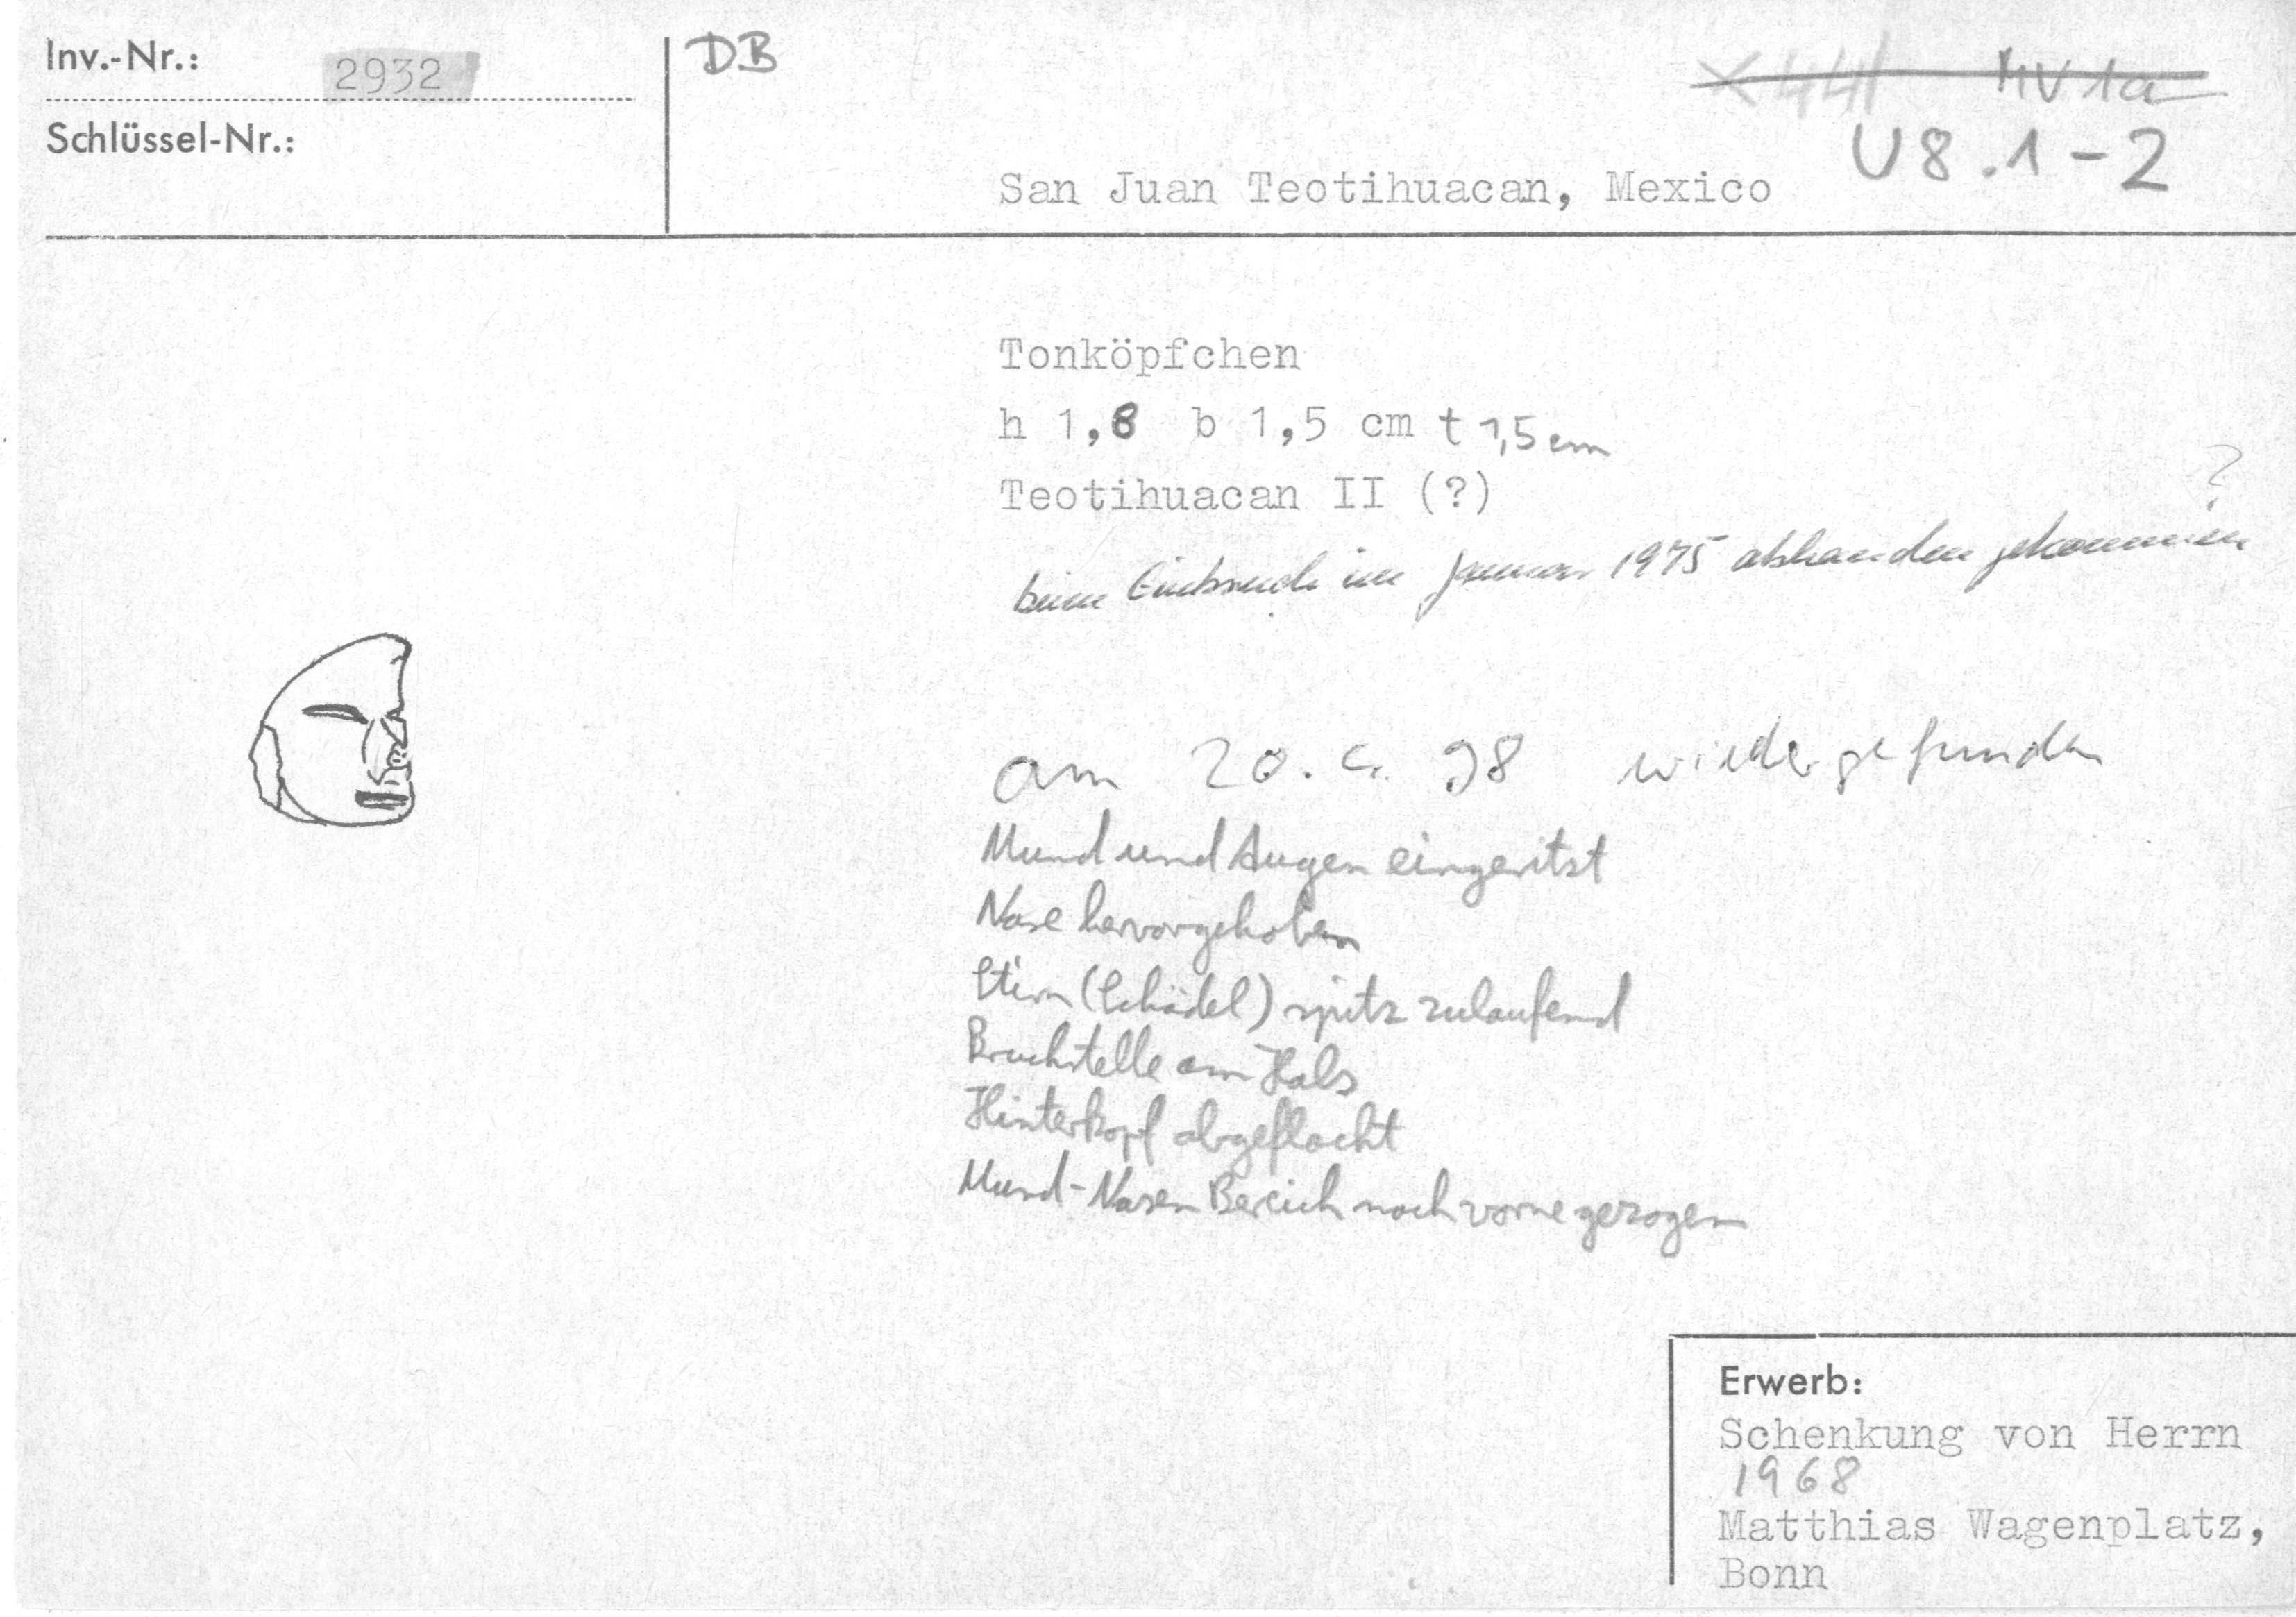 Inv.-Nr.: 2932
Schlüssel-Nr.:
DB
X 441 MV 1a
U 8.1-2
San Juan Teotihuacan, Mexico
Tonköpfchen
h 1,8 b 1,5 cm t 1,5 cm
Teotihuacan II (?)
?
beim Einbruch im Januar 1975 abhanden gekommen
am 20. 98 wiedergefunden
Mund und Augen eingeritzt
Nase hervorgehoben
Stirn (Schädel) spitz zulaufend
Bruchstelle am Hals
Hinterkopf abgeflacht
Mund-Nasen Bereich nach vorne gezogen
Erwerb:
Schenkung von Herrn
1968
Matthias Wagenplatz,
Bonn